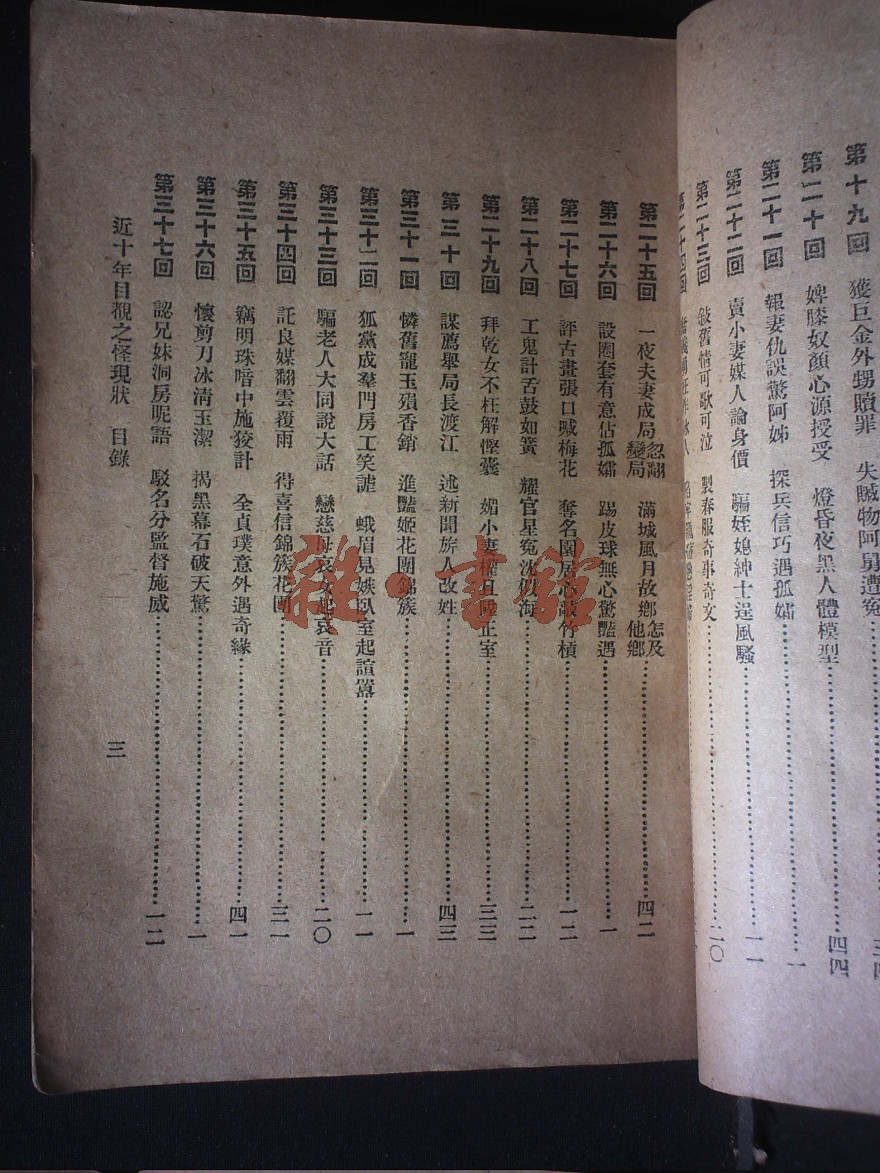 第十九回 獲巨金外甥贖罪 失贓物阿舅遭冤
第二十回 婢膝奴顏心源授受 燈昏夜黑人體模型 四四
第二十一回 報妻仇誤驚阿姊 探兵信巧遇孤孀 一
第二十二回 賣小妻媒人論身價 騙姪媳紳士逞風騷 一一
第二十三回 敍舊情可歌可泣 製春服奇事奇文 二〇
第二十四回
第二十五回 一夜夫妻成局忽翻變局 滿城風月故鄉怎及他鄉 四二
第二十六回 設圈套有意佔孤孀 踢皮球無心驚豔遇 一
第二十七回 評古畫張口喊梅花 奪名園居心敲竹槓 一二
第二十八回 工鬼計舌鼓如簧 耀官星冤沈 海 二二
第二十九回 拜乾女不枉解慳囊 媚小妻權且 正室 三三
第三十回 謀薦舉局長渡江 述新聞旂人改姓 四三
第三十一回 憐舊寵玉殞香銷 進豔姬花團錦簇 一
第三十二回 狐黨成羣門房工笑謔 蛾眉見嫉臥室起諠囂 一一
第三十三回 騙老人大同說大話 戀慈母哀女起哀音 二〇
第三十四回 託良媒翻雲覆雨 得喜信錦簇花團 三一
第三十五回 竊明珠暗中施狡計 全貞璞意外遇奇緣 四一
第三十六回 懷剪刀冰清玉潔 揭黑幕石破天驚 一
第三十七回 認兄妹洞房昵語 駁名分監督施威 一二
近十年目覩之怪現狀 目錄 三
雜·書館